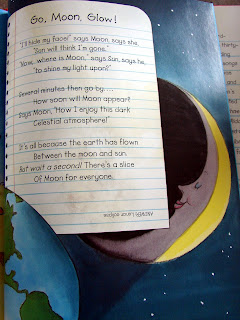 Go, Moon, Glow!
"I'll hide my face!" says Moon, says she,
"Sun will think I'm gone."
"Now, where is Moon," says Sun, says he,
"to shine my light upon?"
Several minutes then go by . . .
How soon will Moon appear?
Says Moon, "How I enjoy this dark
Celestial atmosphere!"
It's all because the earth has flown
Between the moon and sun.
But wait a second! There's a slice
Of Moon for everyone.
ANSWER: Lunar eclipse